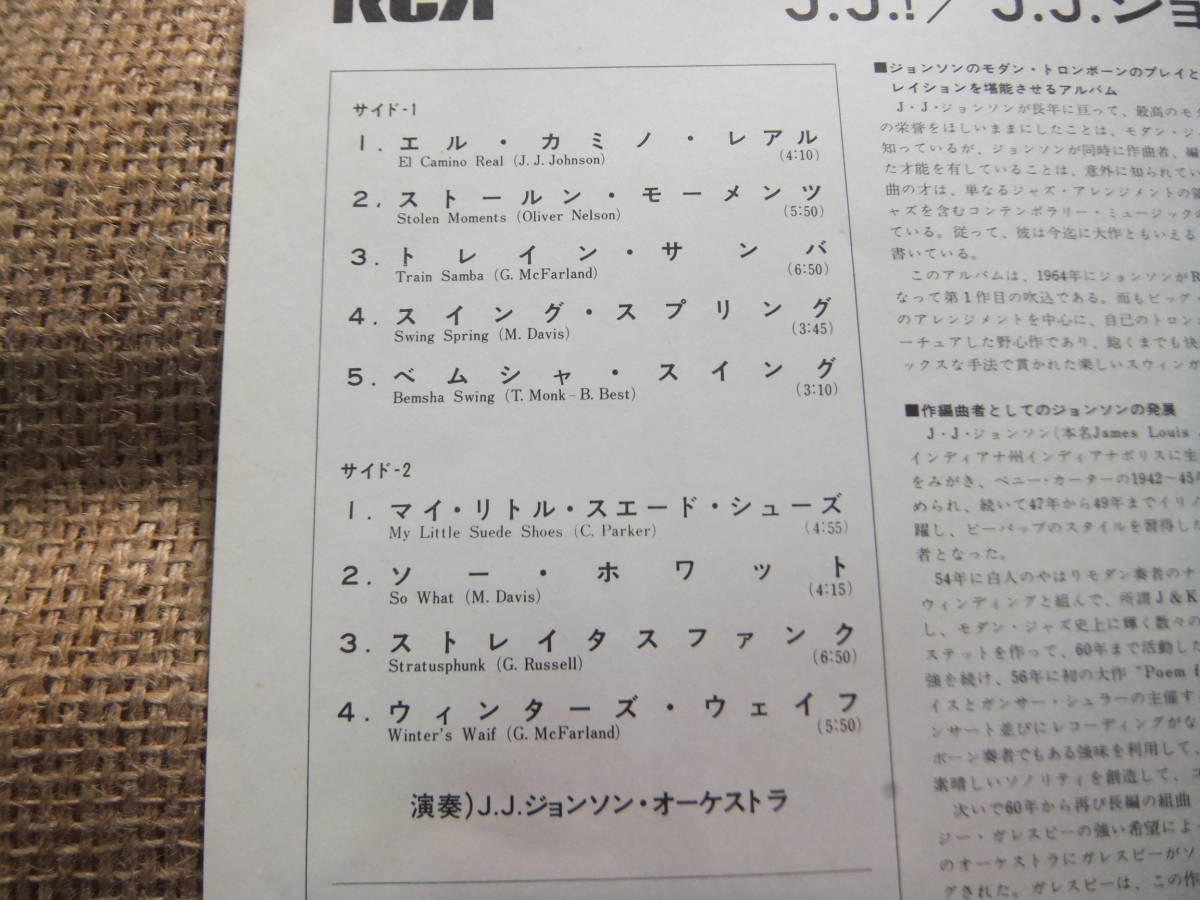 RCA
J.J.! / J.J.ジョ
サイド-1
1. エル・カミノ・レアル
El Camino Real (J. J. Johnson) (4:10)
2. ストールン・モーメンツ
Stolen Moments (Oliver Nelson) (5:50)
3. トレイン・サンバ
Train Samba (G. McFarland) (6:50)
4. スイング・スプリング
Swing Spring (M. Davis) (3:45)
5. ベムシャ・スイング
Bemsha Swing (T. Monk-B. Best) (3:10)
サイド-2
1. マイ・リトル・スエード・シューズ
My Little Suede Shoes (C. Parker) (4:55)
2. ソー・ホワット
So What (M. Davis) (4:15)
3. ストレイタスファンク
Stratusphunk (G. Russell) (6:50)
4. ウィンターズ・ウェイフ
Winter's Waif (G. McFarland) (5:50)
演奏)J.J.ジョンソン・オーケストラ
■ジョンソンのモダン・トロンボーンのプレイと
レイションを堪能させるアルバム
J・J・ジョンソンが長年に亘って、最高のモ
の栄誉をほしいままにしたことは、モダン・ジ
知っているが、ジョンソンが同時に作曲者、編
た才能を有していることは、意外に知られてい
曲の才は、単なるジャズ・アレンジメントの
ャズを含むコンテンポラリー・ミュージックの
ている。従って、彼は今迄に大作ともいえる
書いている。
このアルバムは、1964年にジョンソンがR
なって第1作目の吹込である。而もビッグ・
のアレンジメントを中心に、自己のトロン
ーチュアした野心作であり、飽くまでも快
ックスな手法で貫かれた楽しいスウィンガ
■作編曲者としてのジョンソンの発展
J・J・ジョンソン(本名James Louis
インディアナ州インディアナポリスに生
をみがき、ベニー・カーターの1942~45年
められ、続いて47年から49年までイリノ
躍し、ビーバップのスタイルを習得した
者となった。
54年に白人のやはりモダン奏者のナ
ウィンディングと組んで、所謂J&K
し、モダン・ジャズ史上に輝く数々の
ステットを作って、60年まで活動した
強を続け、56年に初の大作 "Poem f
イスとガンサー・シュラーの主催す
ンサート並びにレコーディングがな
ボーン奏者でもある強味を利用して、
素晴しいソノリティを創造して、コ
次いで60年から再び長編の組曲
ジー・ガレスピーの強い希望によっ
のオーケストラにガレスピーがソ
グされた。ガレスピーは、この作